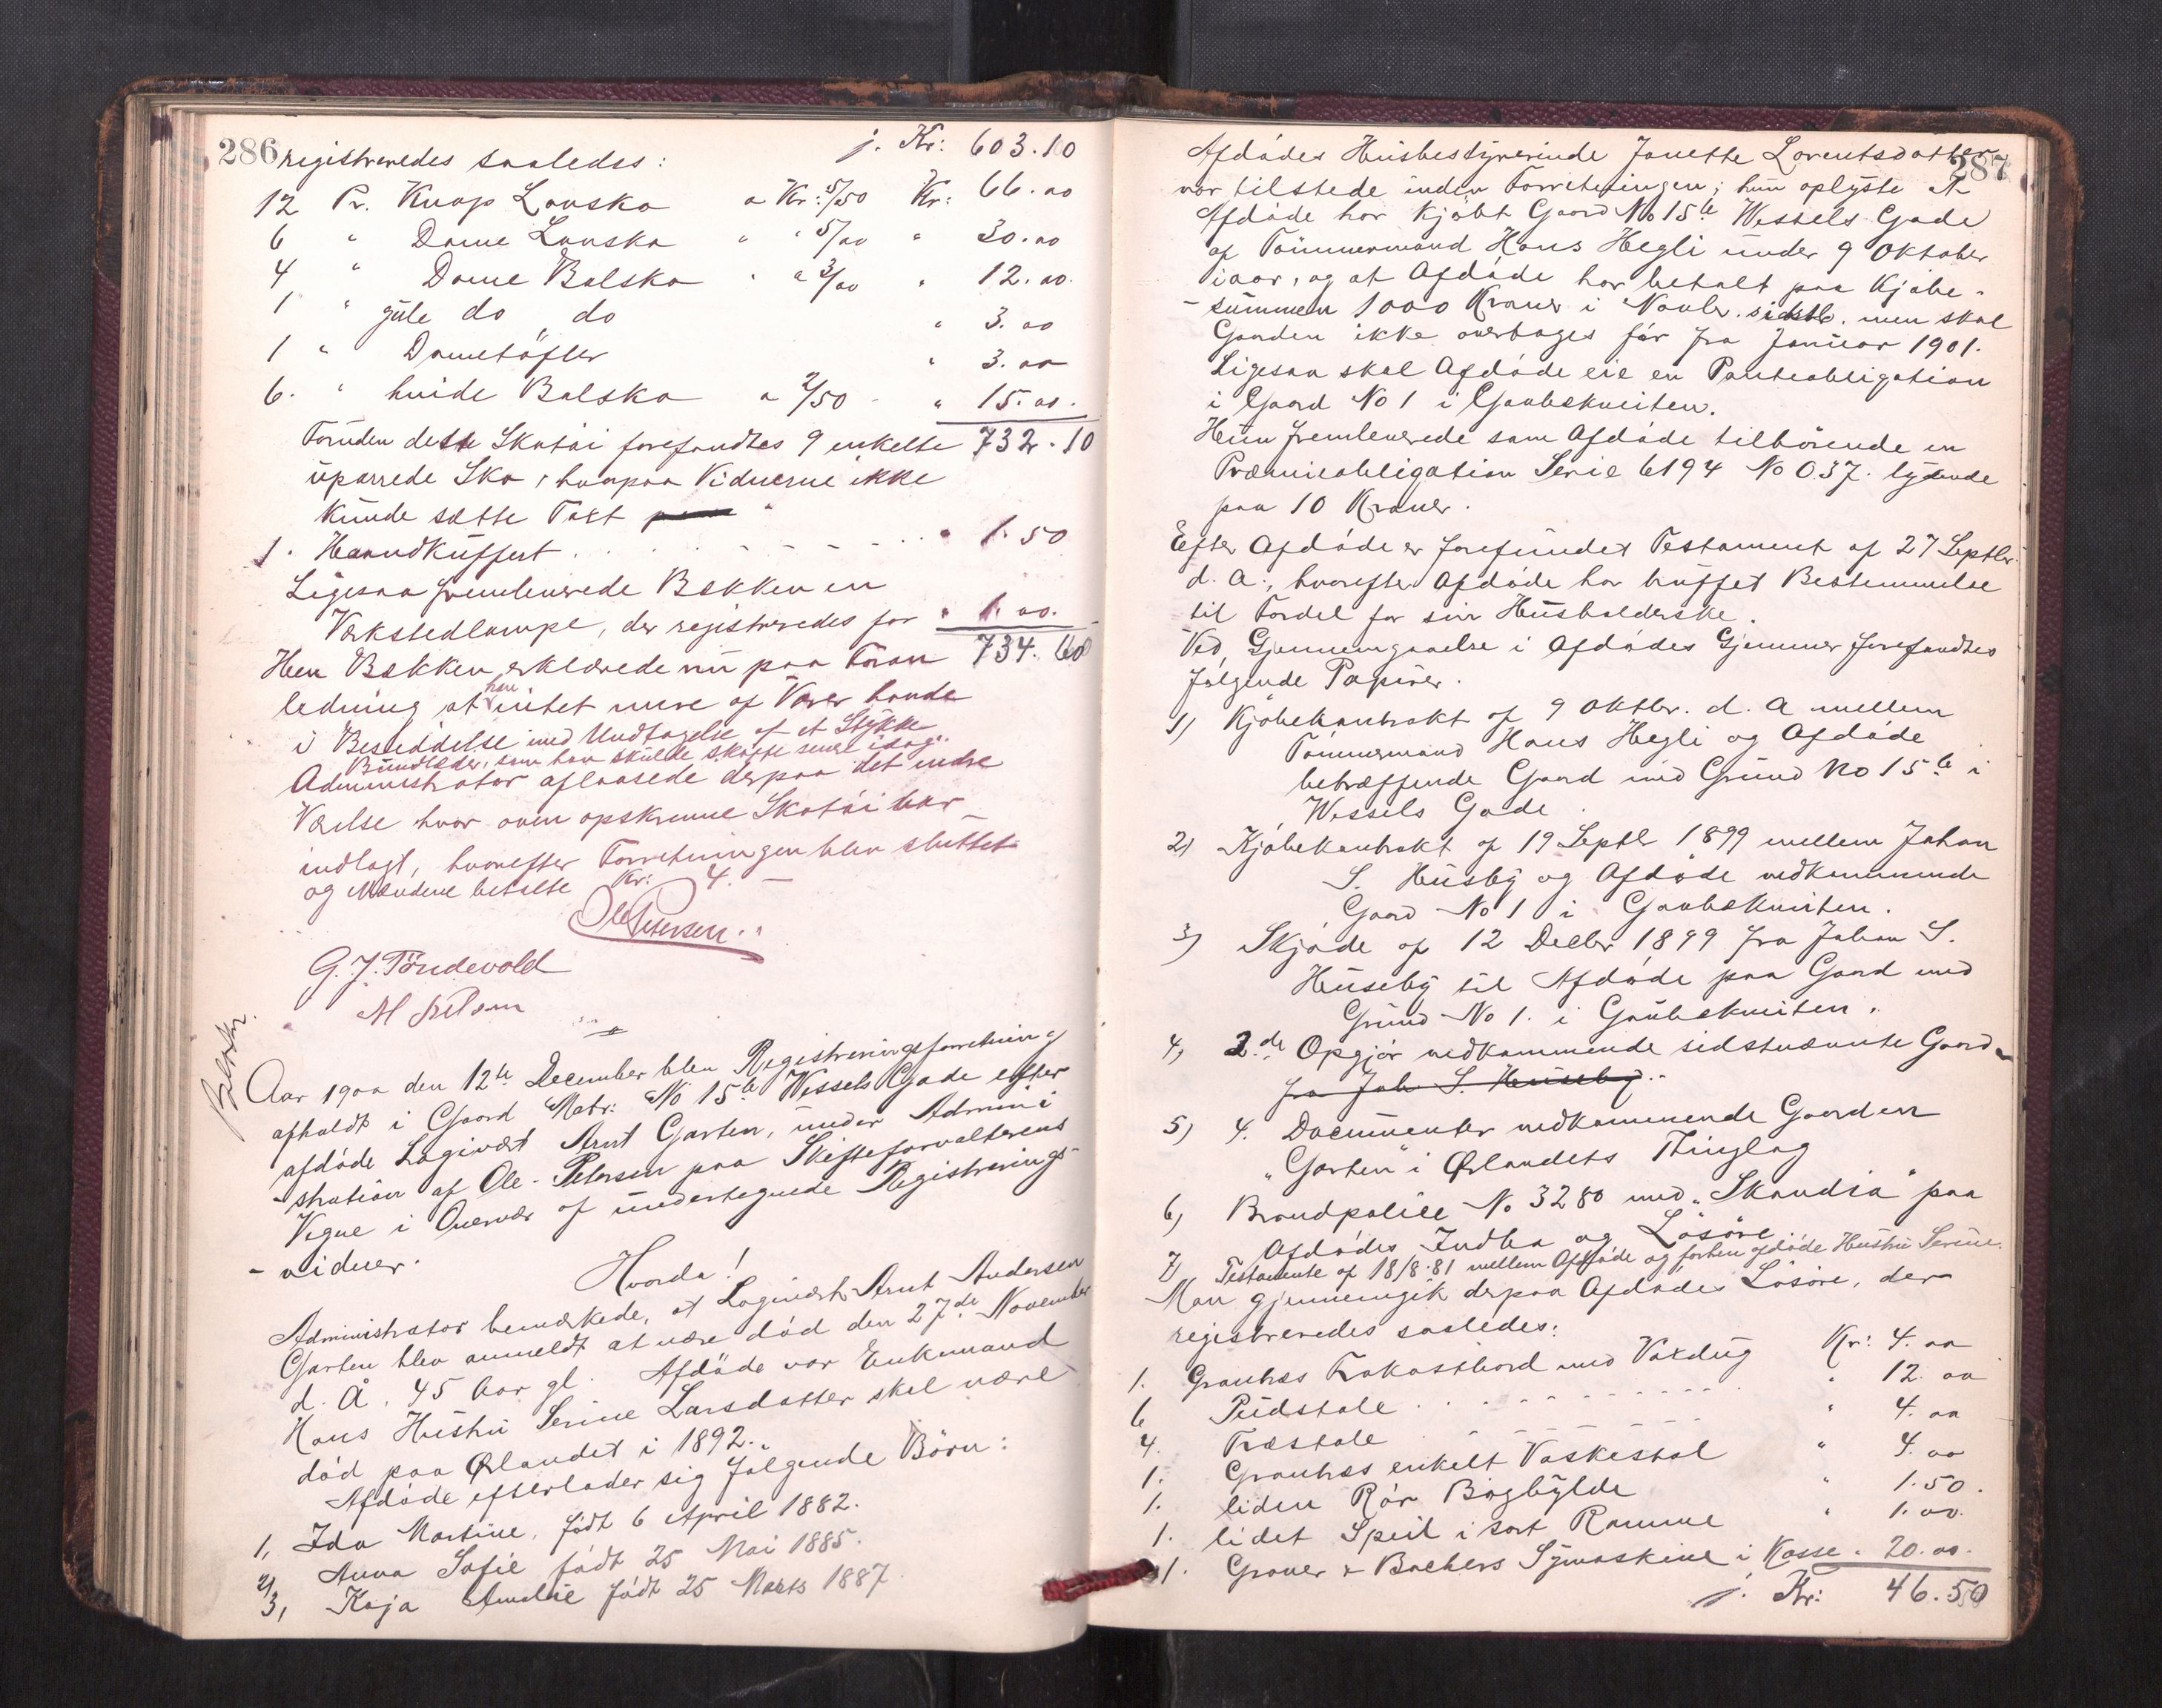 286 registreredes saaledes: j. Kr: 603.10
12 Pr. Knap Lansko a Kr: 5/50 Kr: 66.00
6 " Dame Lansko " " 5/00 " 30.00
4 " Dame Balsko " a 3/00 " 12.00
1 " gule do do " 3.00
1 " Dametøfler " 3.00
6. " hvide Balsko a 2/50 - " 15.00.
Foruden dette Skotøi forefandtes 9 enkelte 732.10
uparrede Sko, hvorpaa Vidnerne ikke
kunde sætte Taxt
1. Haandkuffert " 1.50
Ligesaa fremleverede Bakken en
Værkstedlampe, der registreredes for " 1.00.
Herr Bakken erklærede nu paa Foran 734.60
ledning at han intet mere af Varer havde
i Besiddelse med Undtagelse af et Stykke
Bundlæder, som han skulde skaffe senere idag.
Administrator aflaasede derpaa det indre
Værelse hvor oven opskrevne Skotøi var
indlagt, hvorefter Forretningen blev sluttet
og Mændene betalte Kr: 4. -
Ole Petersen
G. J. Tøndevold
M Nilsen
Aar 1900 den 12te December blev Registreringsforretning
afholdt i Gaard Matr: No 15b Wessels Gade efter
afdøde Logivært Arnt Garten, under Admini
-stration af Ole Petersen paa Skifteforvalterens
Vegne i Overvær af undertegnede Registrerings-
-vidner.
Hvorda!
Administrator bemærkede, at Logivært Arnt Andersen
Garten blev anmeldt at være død den 27de November
d. A. 45 Aar gl. Afdøde var Enkemand
Hans Hustru Serine Larsdatter skal være
død paa Ørlandet i 1892.
Afdøde efterlader sig følgende Børn:
1, Ida Martine, født 6 April 1882.
2, Anna Sofie født 25 Mai 1885.
3, Kaja Amalie født 25 Marts 1887.
287
Afdødes Husbestyrerinde Janette Lorentsdatter
var tilstede under Forretningen; hun oplyste at
Afdøde har kjøbt Gaard No 15b Wessels Gade
af Tømmermand Hans Hegli under 9 Oktober
iaar, og at Afdøde har betalt paa Kjøbe-
-summen 1000 Kroner i Novbr. sidstl. men skal
Gaarden ikke overtages før fra Januar 1901.
Ligesaa skal Afdøde eie en Panteobligation
i Gaard No 1 i Gaubekveiten.
Hun fremleverede som Afdøde tilhørende en
Præmieobligation Serie 6194 No 037. lydende
paa 10 Kroner.
Efter Afdøde er forefundet Testament af 27 Septbr.
d. A., hvorefter Afdøde har truffet Bestemmelse
til Fordel for sin Husholderske.
Ved Gjennemgaaelse i Afdødes Gjemmer forefandtes
følgende Papirer.
1) Kjøbekontrakt af 9 Oktbr. d. A mellem
Tømmermand Hans Hegli og Afdøde
betræffende Gaard med Grund No 15b i
Wessels Gade.
2) Kjøbekontrakt af 19 Septbr 1899 mellem Johan
S. Husby og Afdøde vedkommende
Gaard No 1 i Gaubekveiten.
3) Skjøde af 12 Decbr 1899 fra Johan S.
Huseby til Afdøde paa Gaard med
Grund No 1. i Gaubekveiten.
4, 2de Opgjør vedkommende sidstnævnte Gaard
fra Joh S. Huseby.
5) 4. Documenter vedkommende Gaarden
"Garten" i Ørlandets Thinglag
6) Brandpolice No 3280 med "Skandia" paa
Afdødes Indbo og Løsøre
7) Testamente af 18/8.81 mellem Afdøde og forhen afdøde Hustru Serine.
Man gjennemgik derpaa Afdødes Løsøre, der
registreredes saaledes:
1. Granhæs Frokostbord med Voxdug Kr: 4.00
6 Pudstole " 12.00
4. Træstole " 4.00
1. Granhæs enkelt Vaskestol " 4.00
1. liden Rør Boghylde " 1.50.
1. lidet Speil i sort Ramme " 1.00.
1. Grover & Bachers Symaskine i Kasse " 20.00.
j. Kr: 46.50